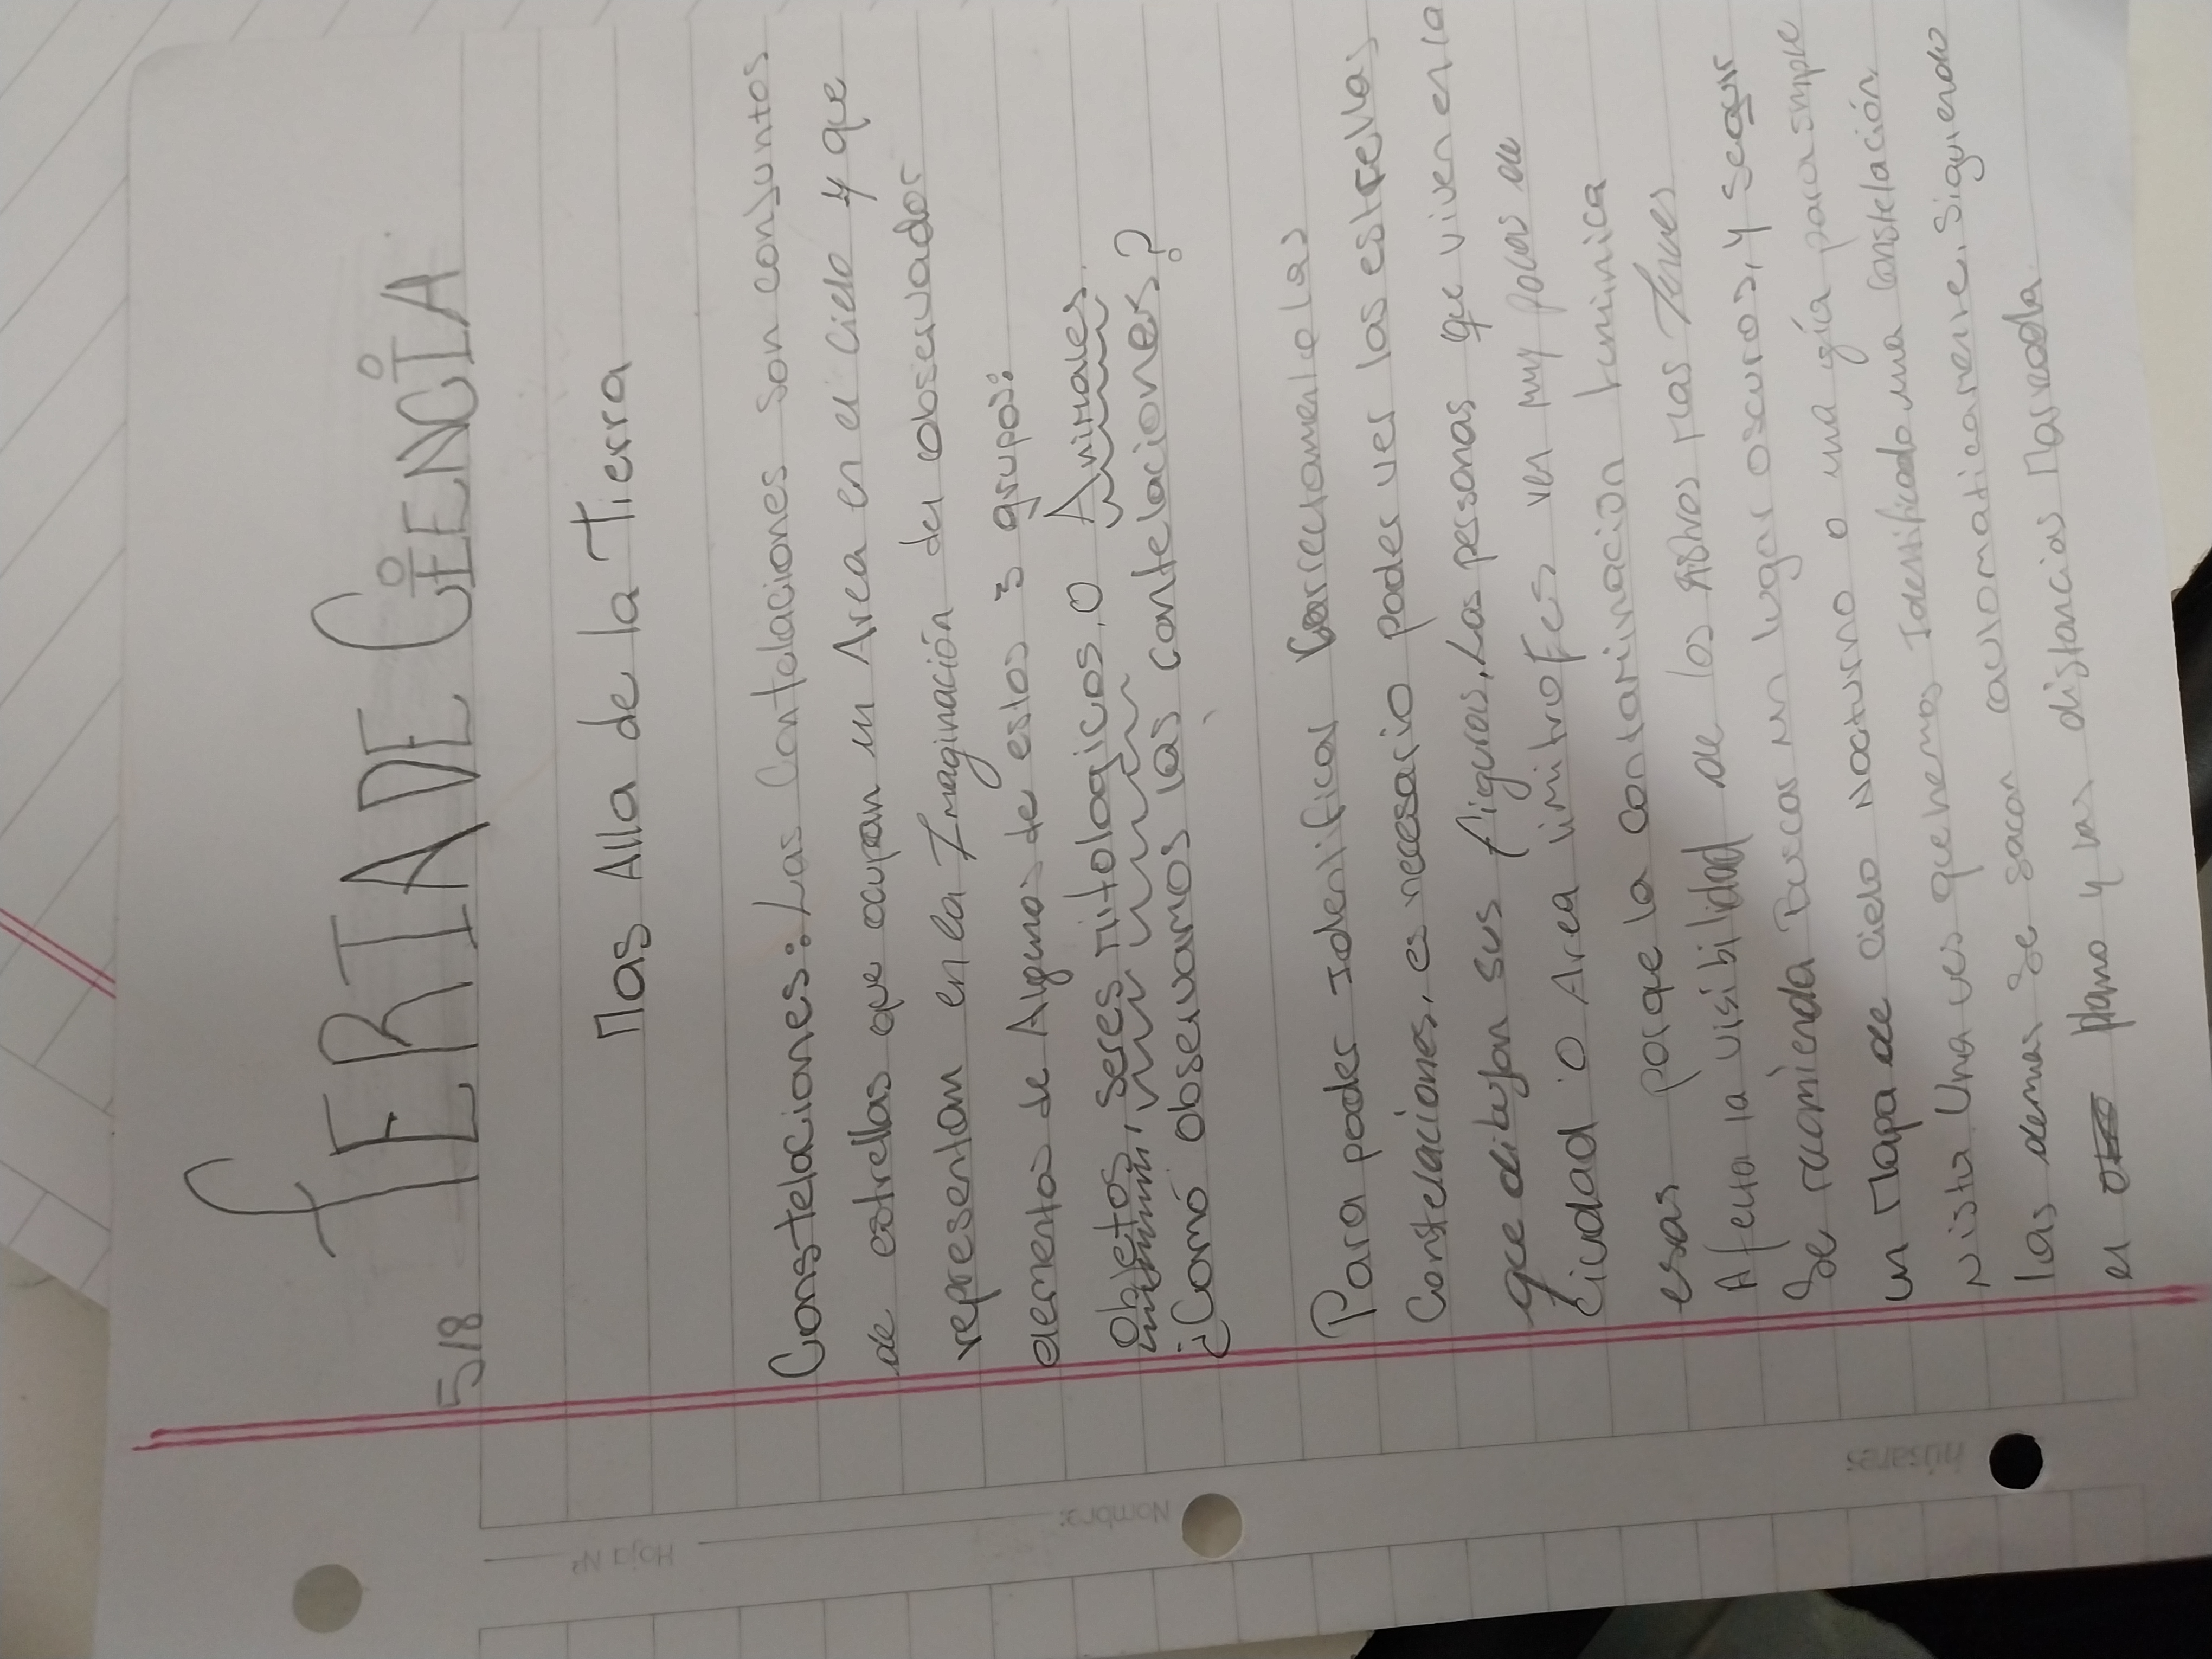 5/8
FERIA DE CIENCIA
Mas Alla de la Tierra
Constelaciones: Las Contelaciones son conjuntos
de estrellas que ocupan un Area en el cielo y que
representan en la Imaginación del observador
elementos de Algunos de estos 3 grupos:
objetos, seres mitologicos, o Animales.
¿Comó observamos las contelaciones?
Para poder Identificar Correctamente las
Constelaciones, es necesario poder ver las estrellas
que dibujan sus figuras, Las personas que viven en la
Ciudad o Area limitrofes ven muy pocas de
esas porque la contaminacion luminica
Afecta la visibilidad de los Astros mas Tenues
Se recomienda Buscar un lugar oscuros, y
un Mapa de cielo nocturno o una guía para simple
vista Una ves que hemos Identificado una constelación
las demas se sacan automaticamente. Siguiendo
el plano y las distancias Marcada
Hoja N°
Nombre: